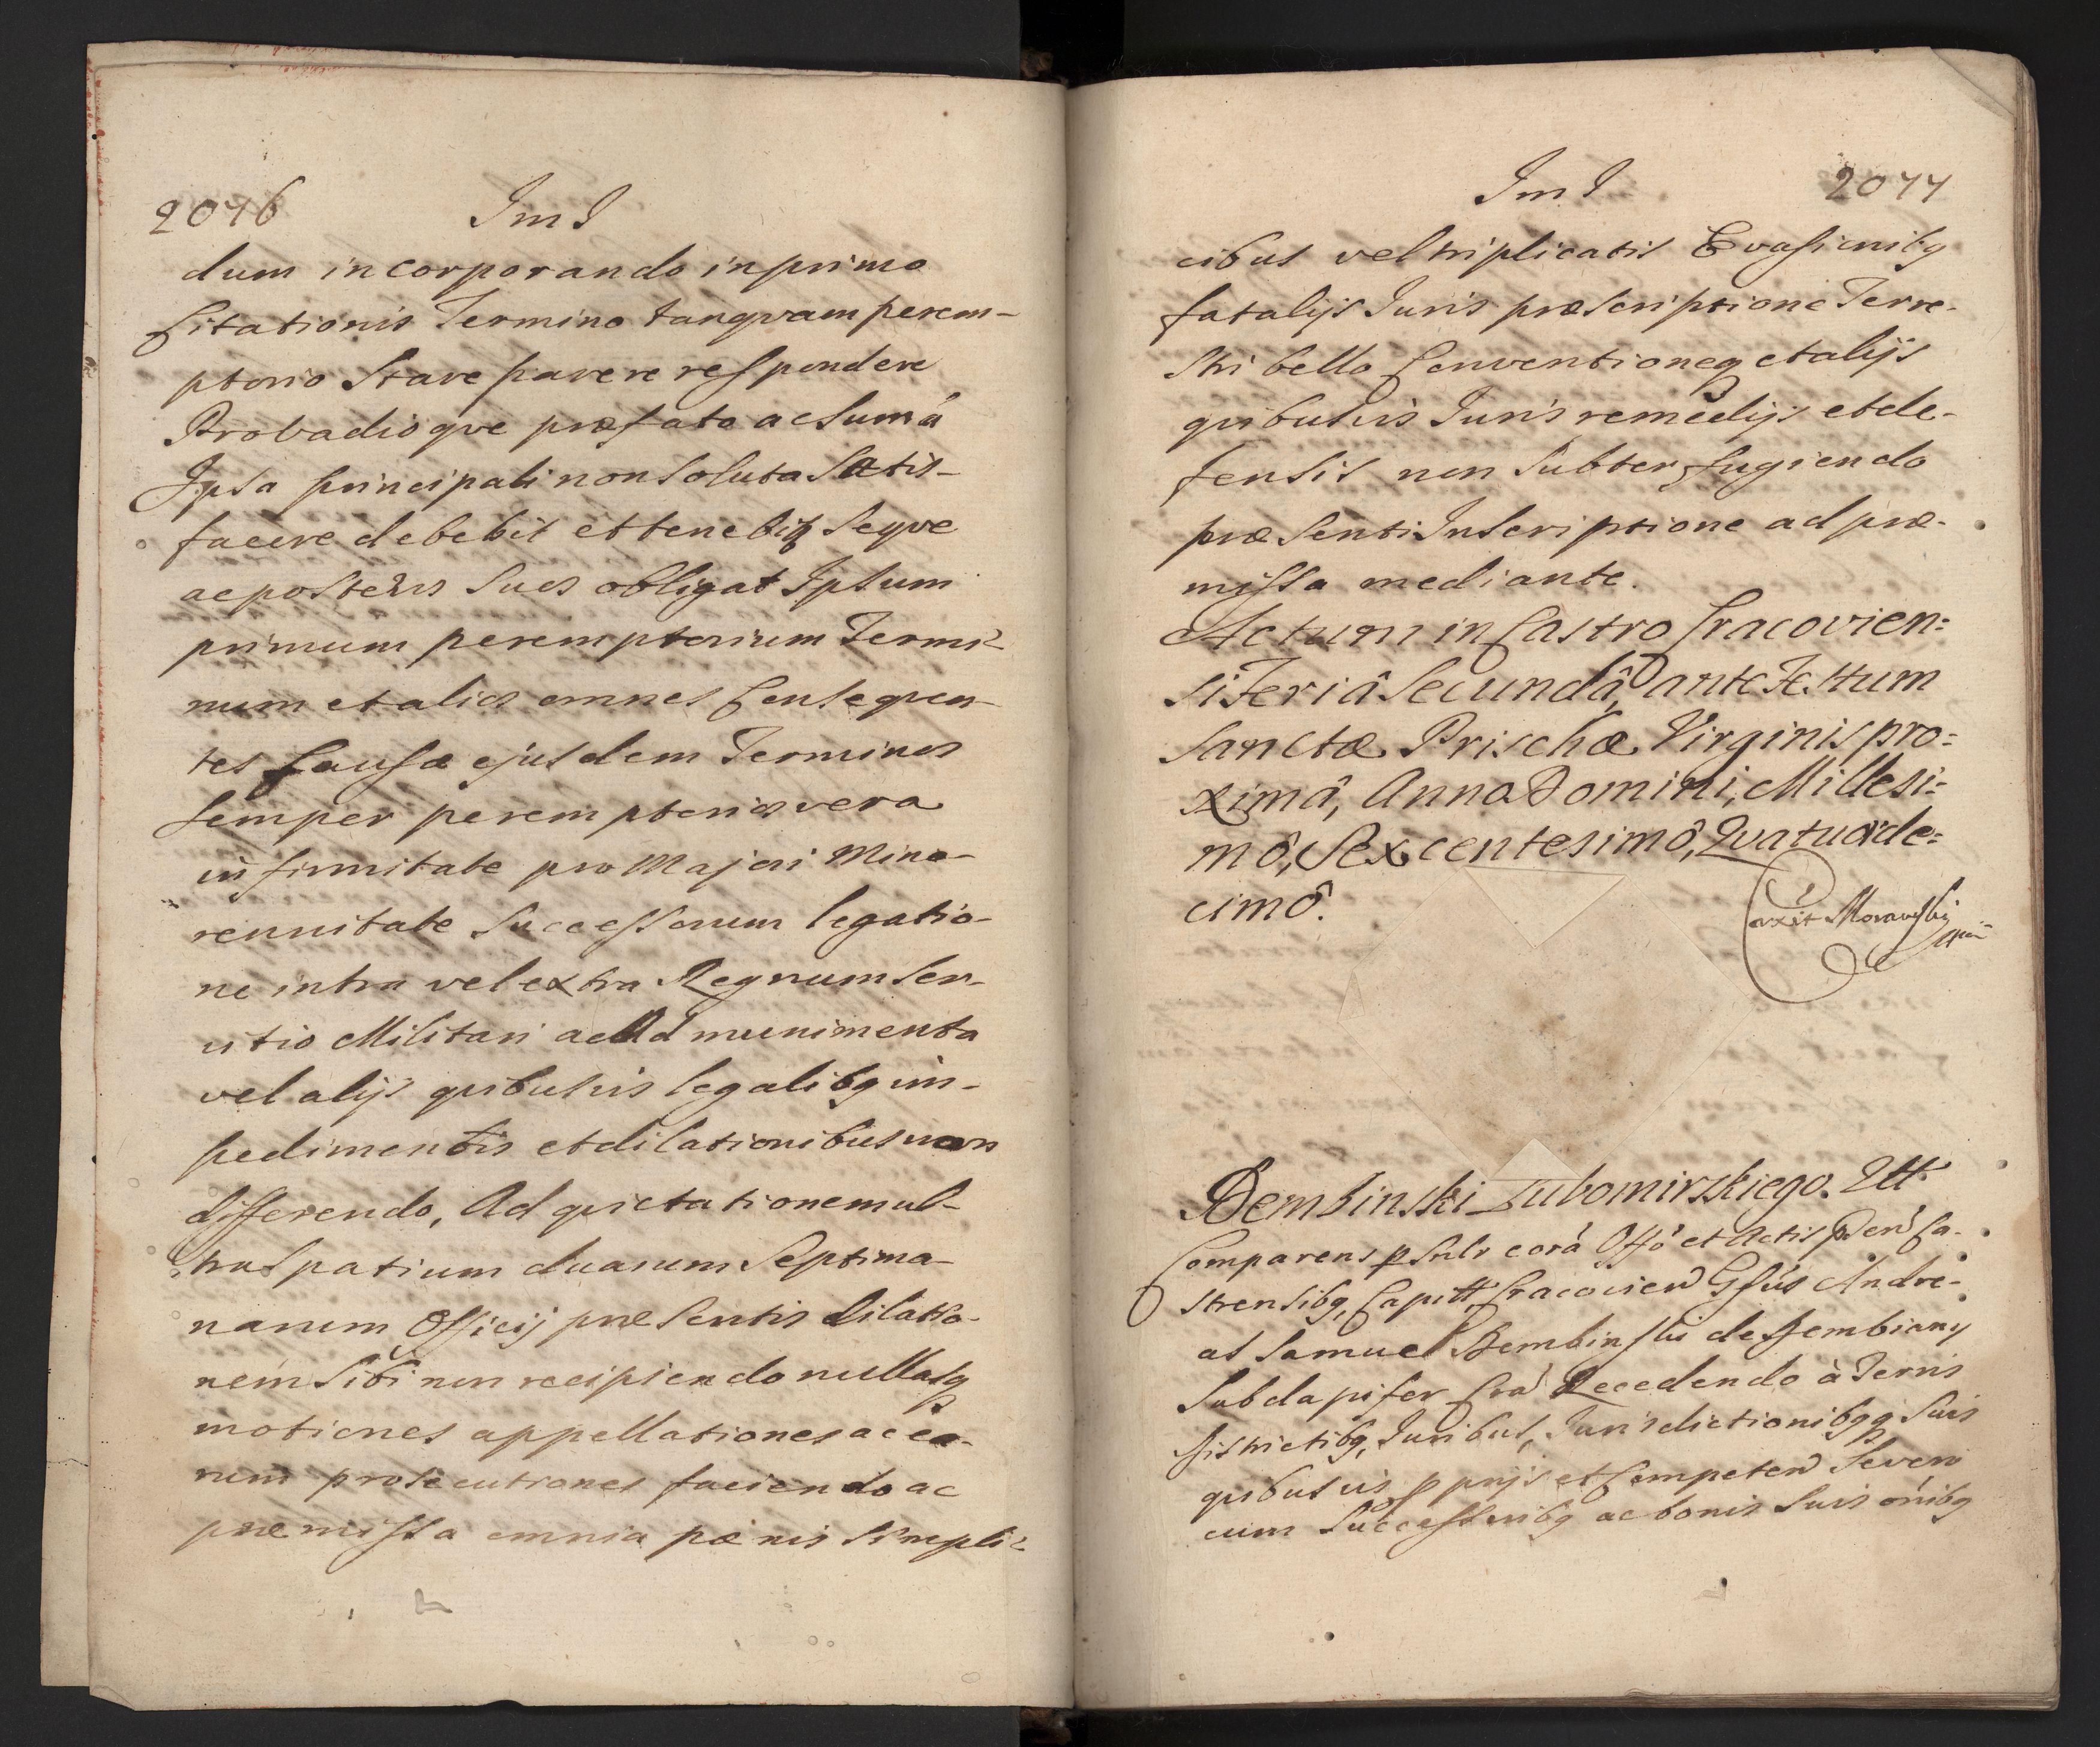 2076
ImI
dum incorporando in primo
Citationis Termino tanqvam perem-
ptorio Stare parere respondere
Pro vadioqve præfato ac Sumâ
Ipsa principali non Soluta Satis-
facere debebit et tenebitq Seqve
ac posteros Suos obligat Ipsum
primum peremptorium Termi-
num et alios omnes Conseqven-
tes Causæ ejusdem Terminos
Semper peremptorios vera
infirmitate pro Majori Mino-
rennitate Successorum legatio-
ne intra vel extra Regnum Ser-
vitio Militari ac Ad munimenta
vel alijs qvibusvis legalibq im-
pedimentis et dilationibus non
differendo, Ad qvietationem ul-
tra Spatium duarum Septima-
narum Officij præsentis dilatio-
nem Sibi non recipiendo nullasq
motiones appellationes ac ea-
rum prosecutiones faciendo ac
præmissa omnia pænis Simpli-
ImI
2077
cibus vel triplicatis Evasionibq
fatalijs Juris præscriptione Terre-
stri bello Conventioneq et alijs
qvibusvis Juris remedijs et de-
fensis non Subterfugiendo
præsenti Inscriptione ad præ-
missa mediante.
Actum in Castro Cracovien=
si Feriâ Secundâ, ante Festum
Sanctæ Prischæ Virginis pro=
ximâ, Anno Domini, Millesi=
mô, Sexcentesimô, Qvatuorde=
cimô.
Moravsky
Dembinski Lubomirskiego. Utt
Comparens pSnlr corâ Offô et Actis pSen Ca-
strensibq, Capitt Cracovien Gsûs Andre-
as Samuel Dembinski de Dembiany
Subdapifer Cra Recedendo à Terris
Districtibq, Juribus, Jurisdictionibqq Suis
qvibusvis pprijs et Competen Seven
cum Successoribq ac bonis Suis oñibq